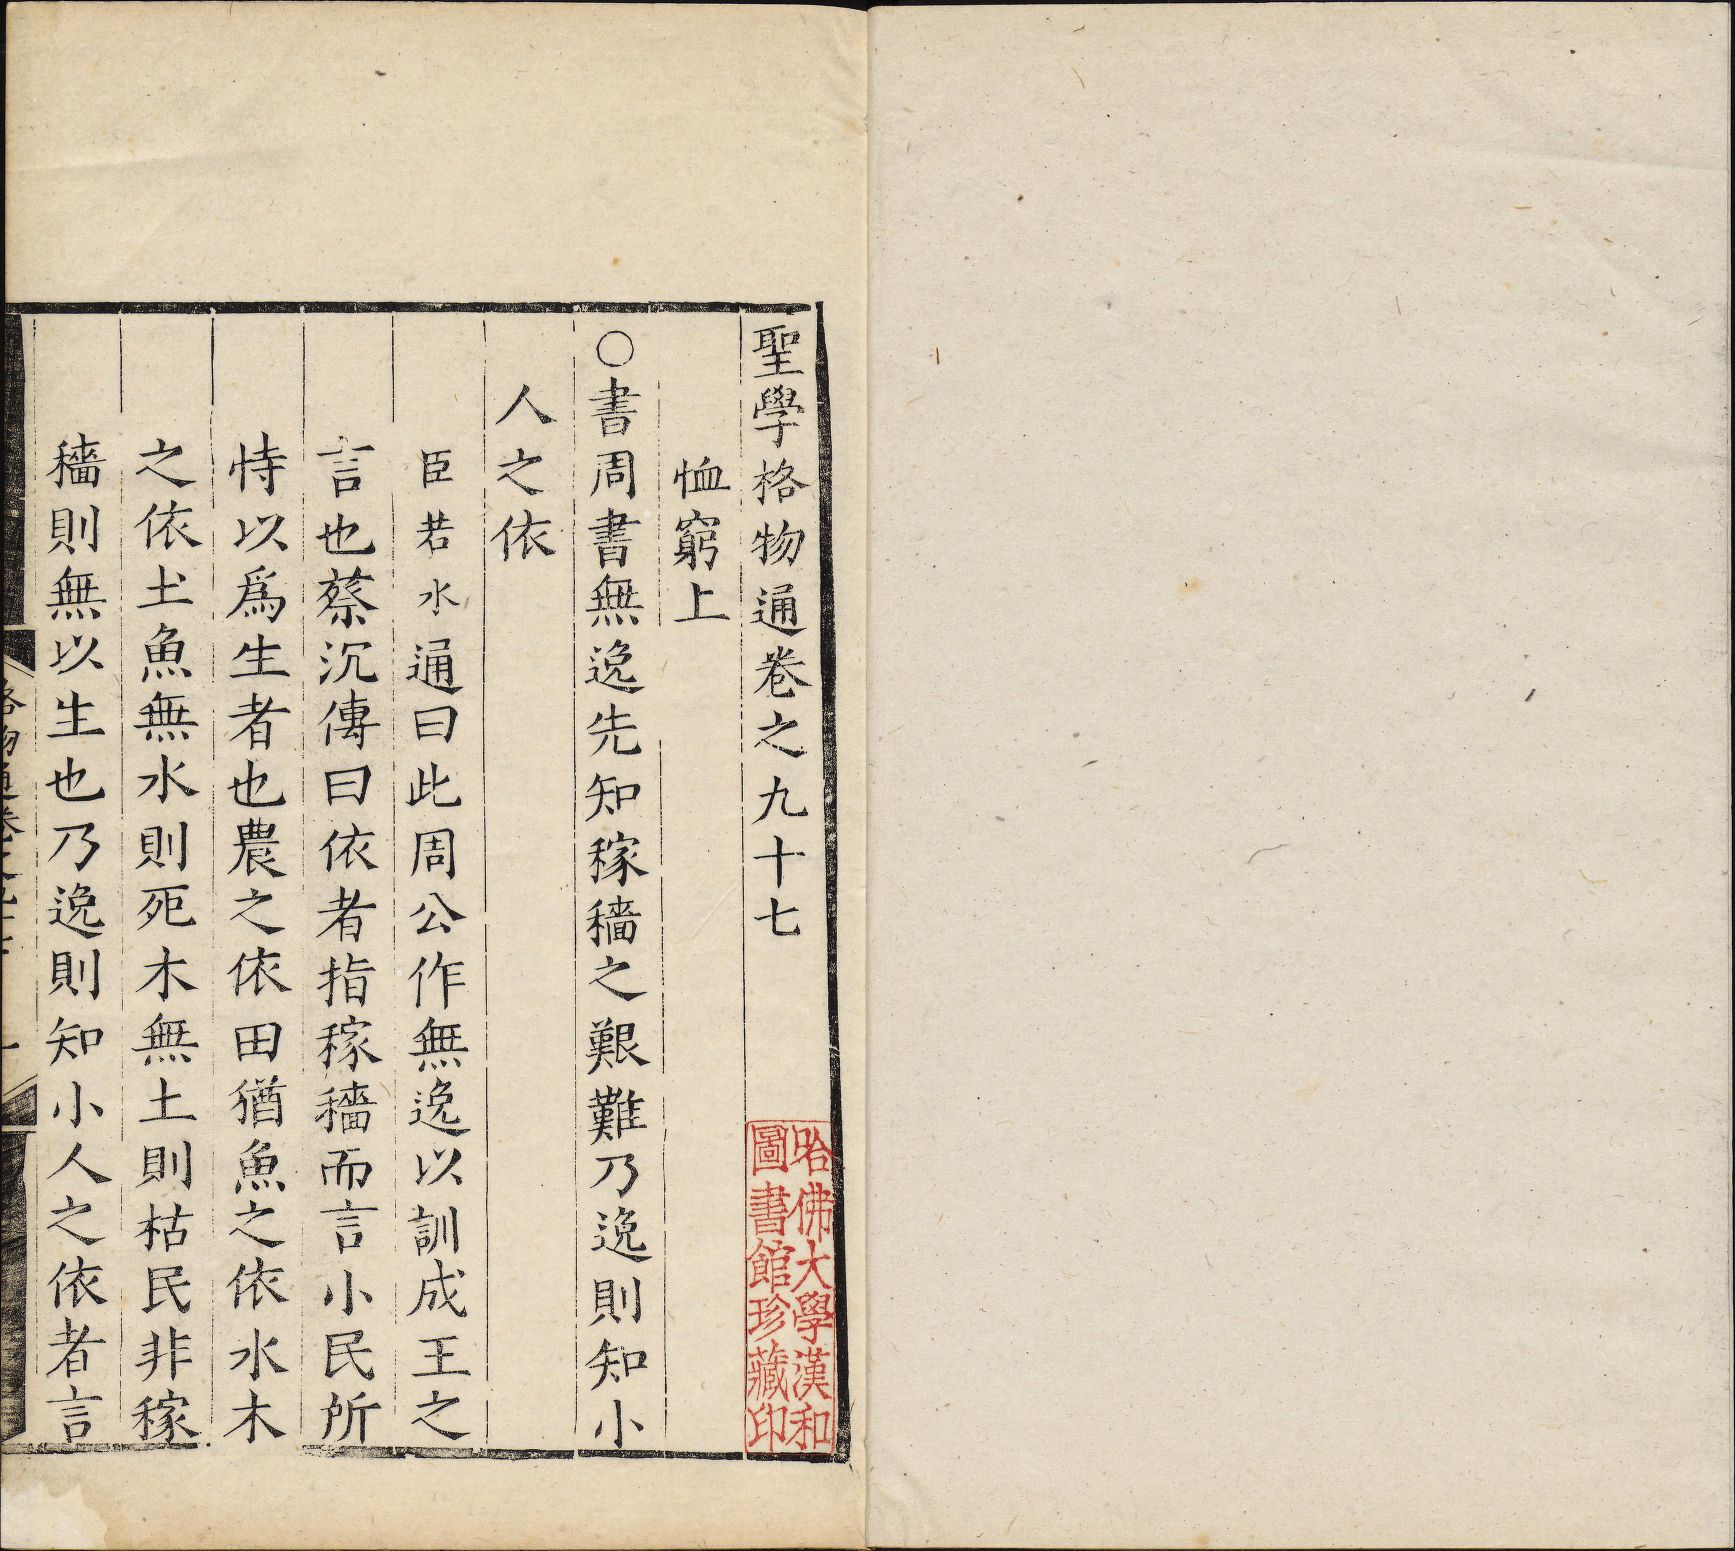 聖學格物通卷之九十七
恤窮上
○書周書無逸先知稼穡之艱難乃逸則知小
人之依
臣若水通曰此周公作無逸以訓成王之
言也蔡沉傳曰依者指稼穡而言小民所
恃以爲生者也農之依田猶魚之依水木
之依土魚無水則死木無土則枯民非稼
穡則無以生也乃逸則知小人之依者言
哈佛大學漢和
圖書館珍藏印